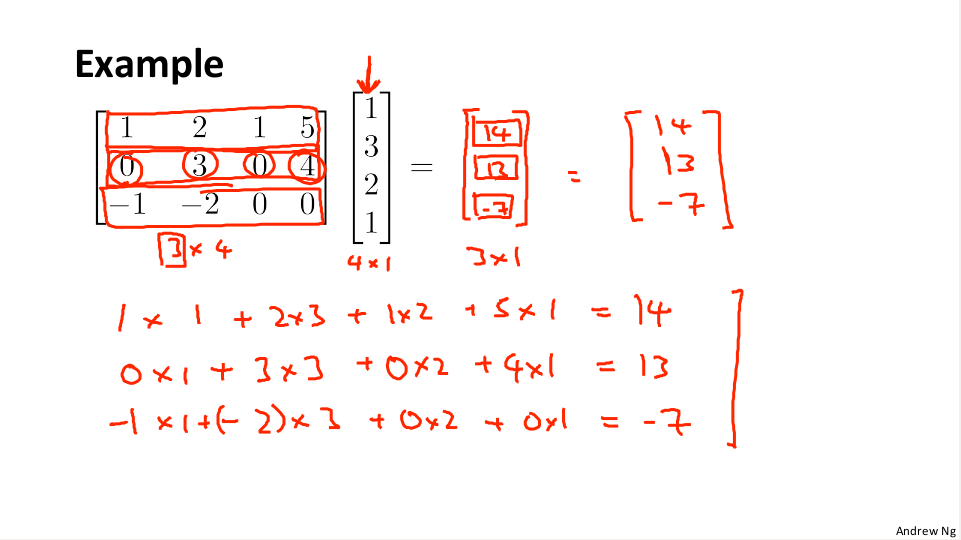 Example
1 2 1 5
0 3 0 4
−1 −2 0 0
1
3
2
1
=
14
13
-7
=
14
13
-7
3 × 4
4 × 1
3×1
1 × 1 + 2×3 + 1×2 + 5×1 = 14
0×1 + 3×3 + 0×2 + 4×1 = 13
-1 ×1+(-2)×3 + 0×2 + 0×1 = -7
Andrew Ng